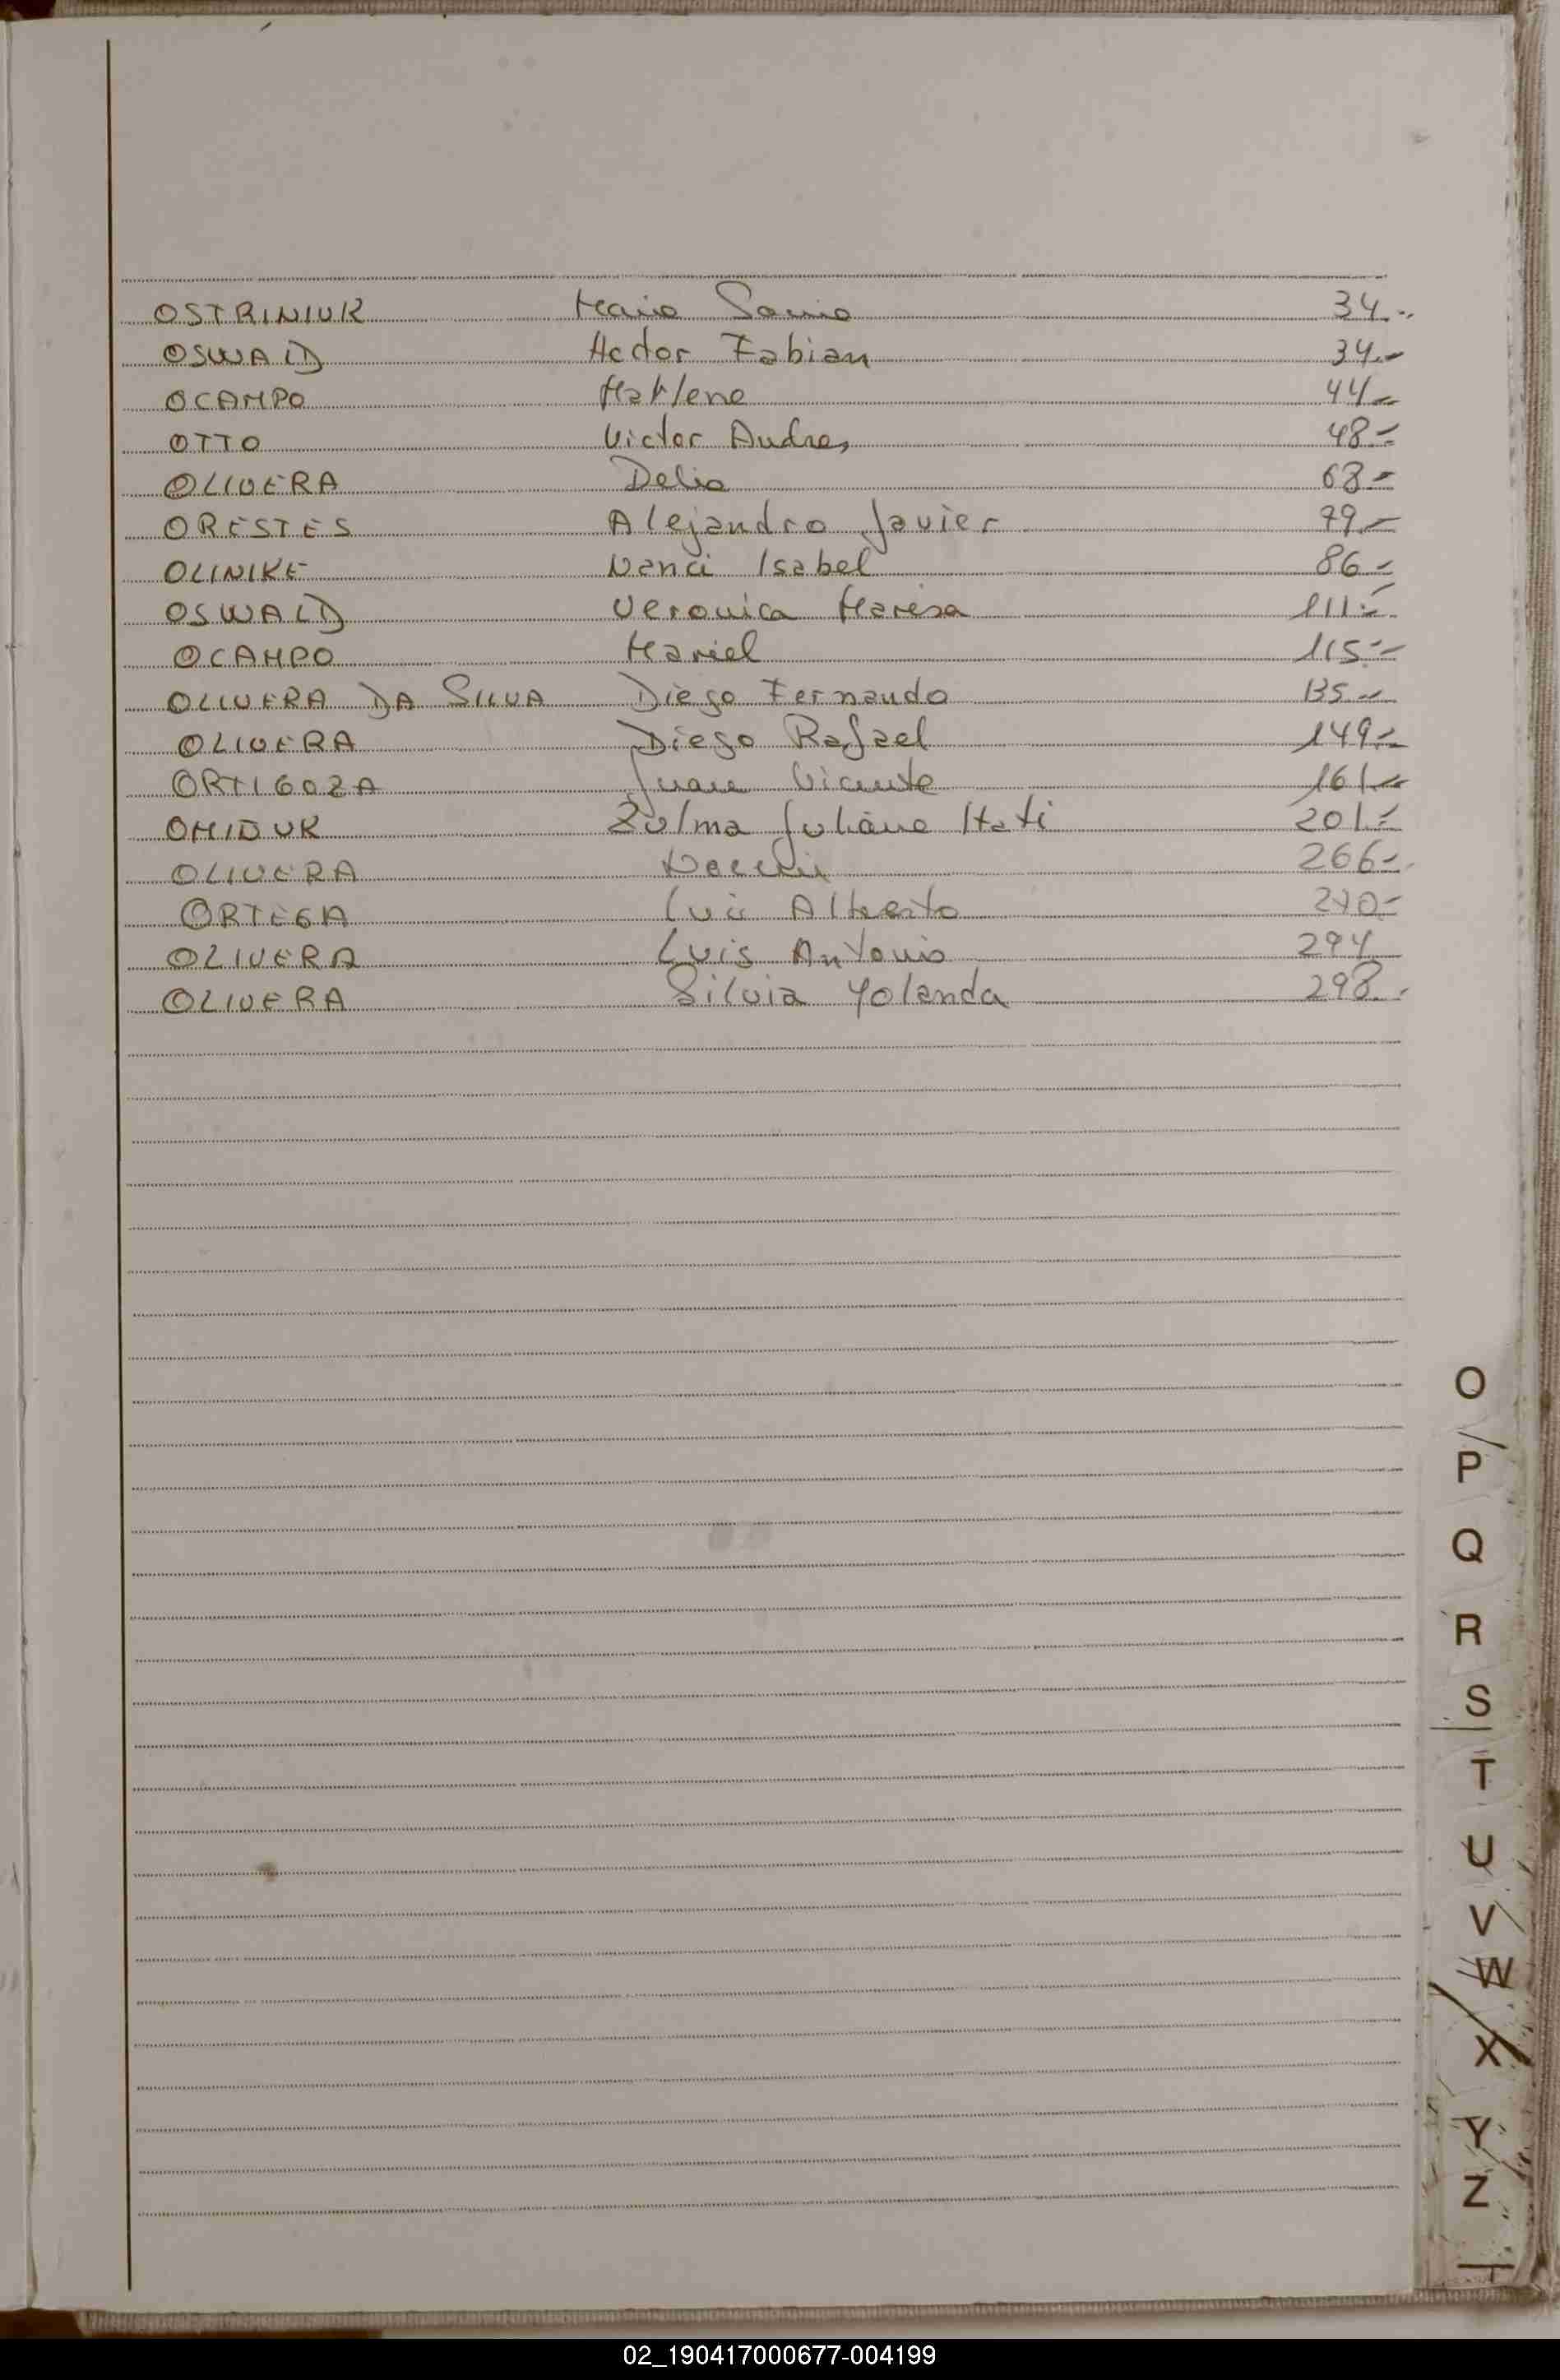 OSTRINIUK Maria Sonia 34.-
OSWALD Hector Fabian 34.-
OCAMPO Marlene 44.-
OTTO Victor Andres 48.-
OLIVERA Delia 68.-
ORESTES Alejandro Javier 79.-
OLINIKE Nanci Isabel 86.-
OSWALD Veronica Marisa 111.-
OCAMPO Mariel 115.-
OLIVERA DA SILVA Diego Fernando 135.-
OLIVERA Diego Rafael 149.-
ORTIGOZA Juan Vicente 161.-
OMIDUK Zulma Juliana Itati 201.-
OLIVERA 266.-
ORTEGA Luis Alberto 270.-
OLIVERA Luis Antonio 294
OLIVERA Silvia Yolanda 298.-
O
P
Q
R
S
T
U
V
W
X
Y
Z
02_190417000677-004199